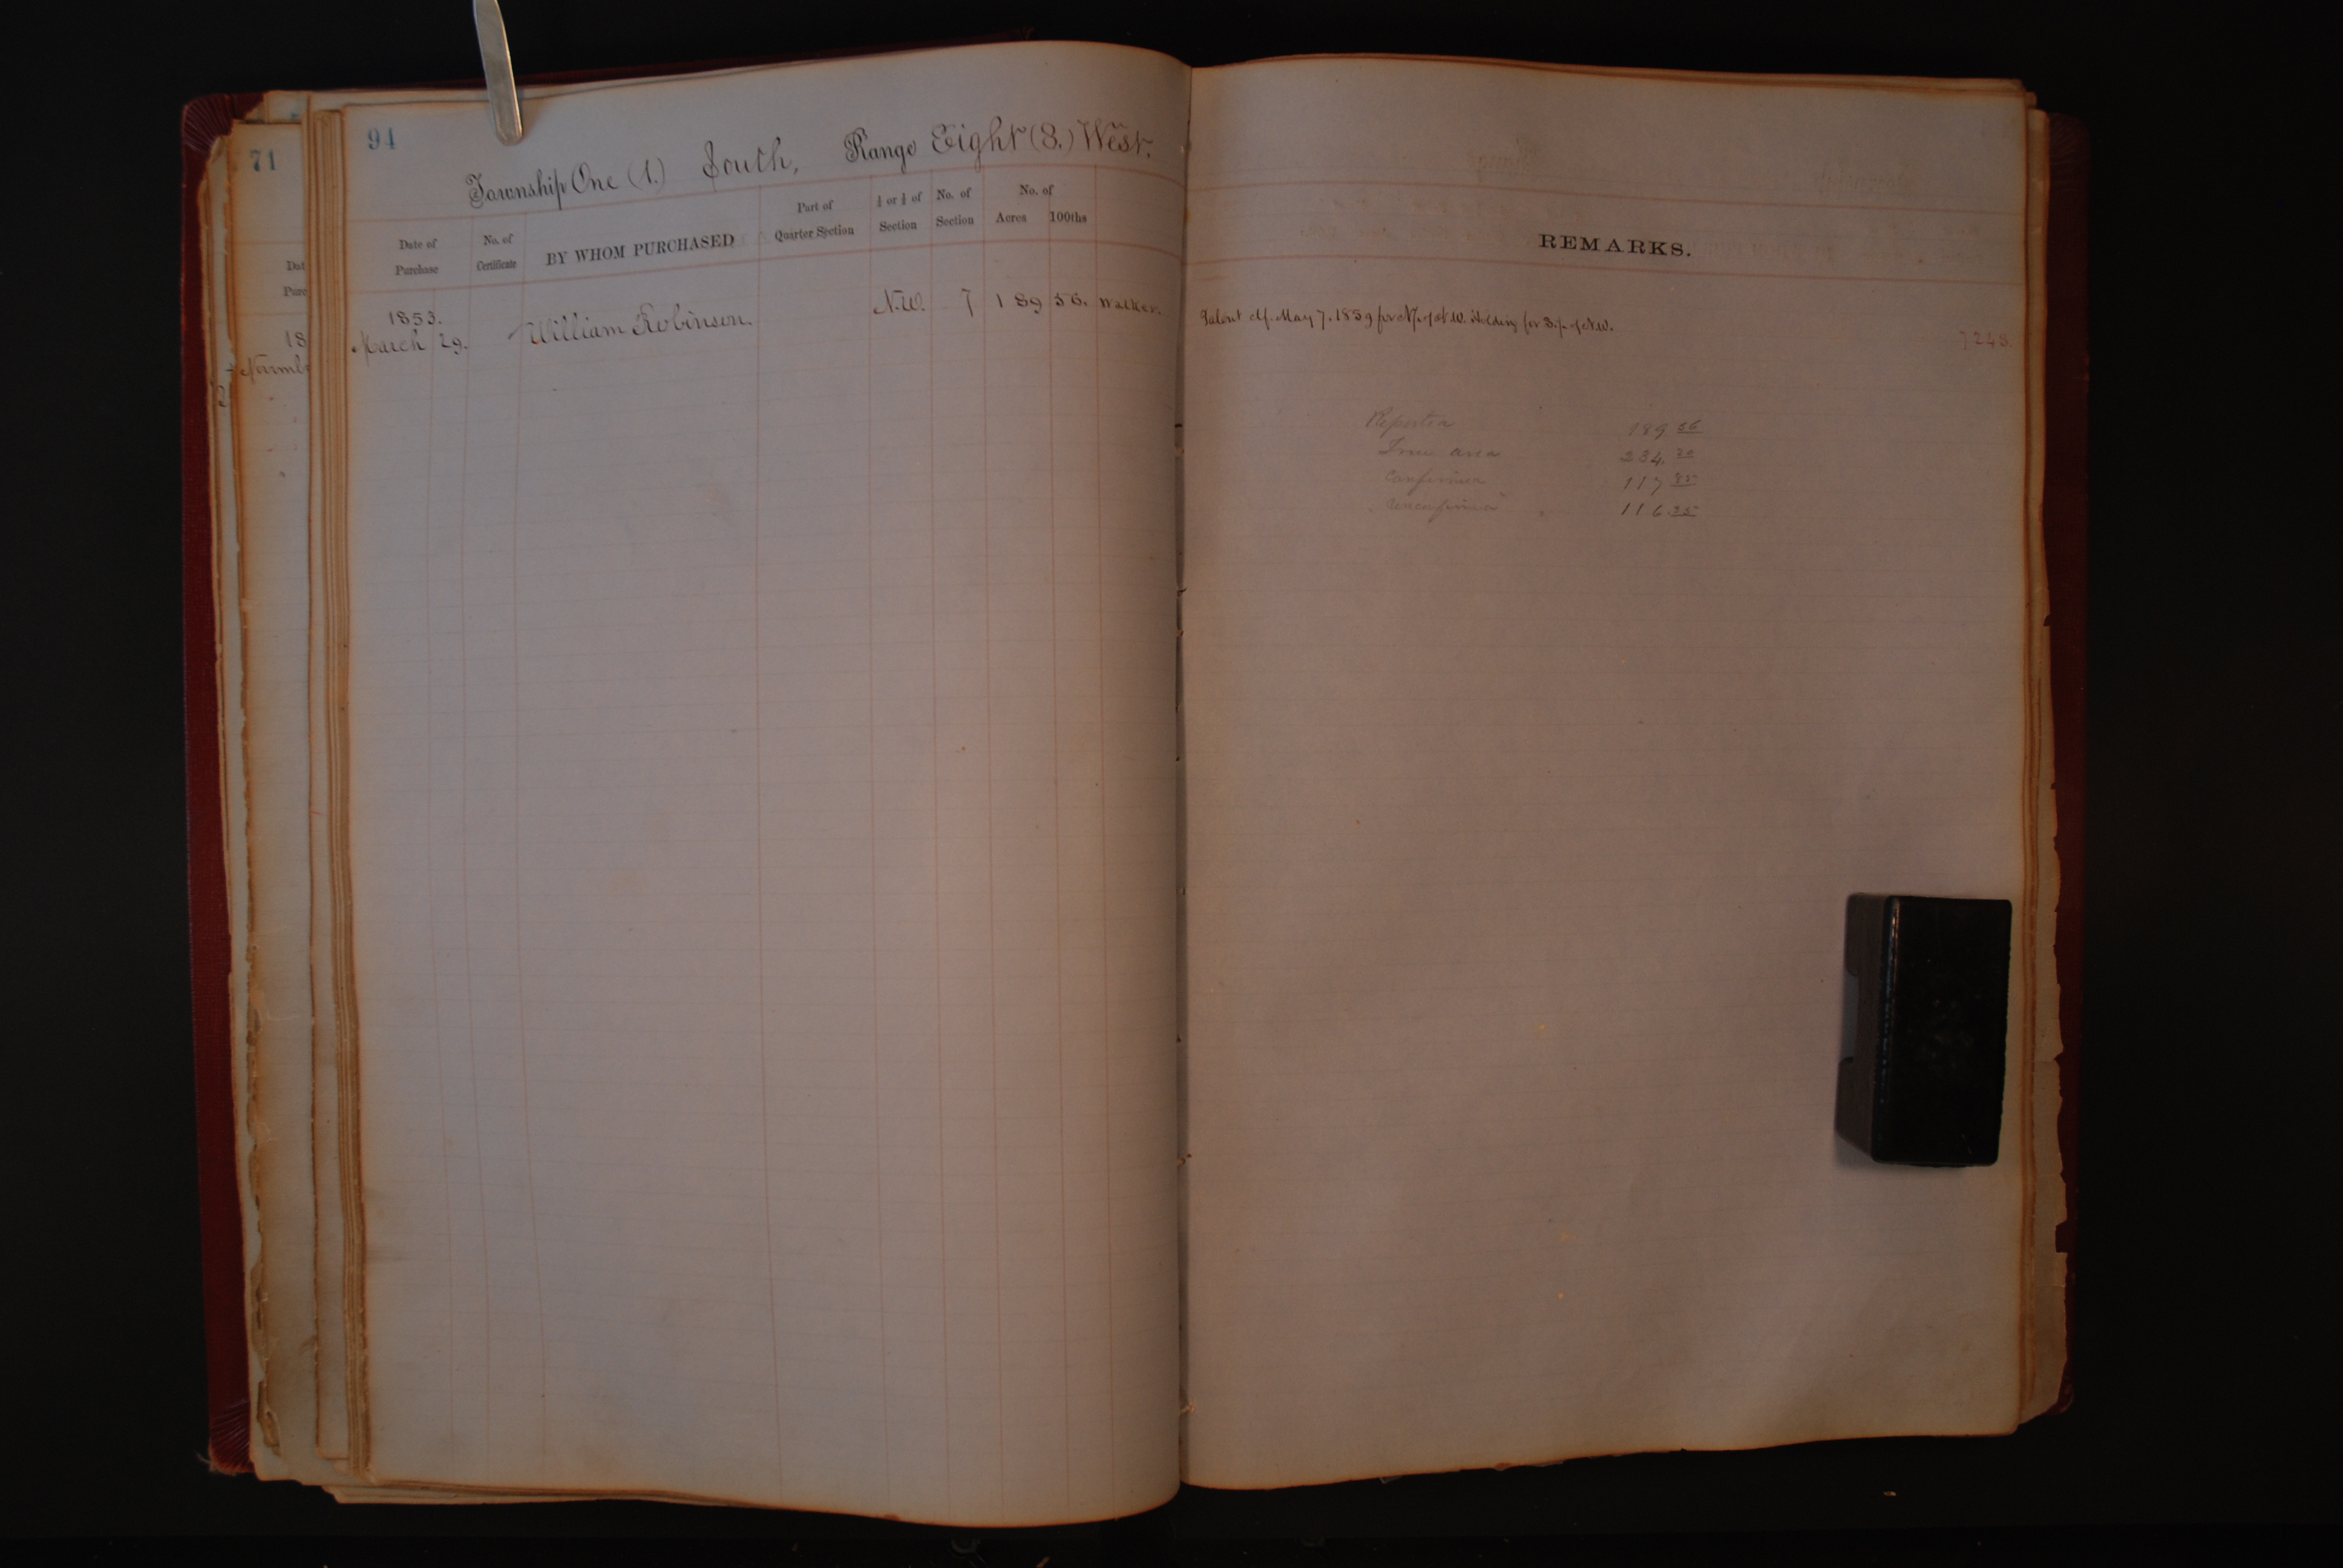 71
Dat
Purc
18
94
Township One (1.) South, Range Eight (8.) West.
Date of Purchase
No. of Certificate
BY WHOM PURCHASED
Part of Quarter Section
¼ or ½ of Section
No. of Section
No. of Acres 100ths
1853.
March 29. William Robinson. N.W. 7 189 56. Walker.
REMARKS.
May 7. 1859 for N.½ of N.W. Holding for S.½ of N.W.
7248.
Reported 189 56
True area 234. 20
Confirmed 117 85
Unconfirmed 116 35